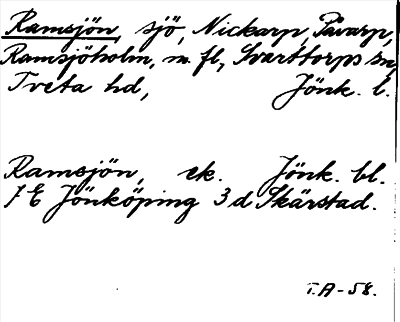 Ramsjön, sjö, Nickarp, Påvarp,
Ramsjöholm, m. fl., Svarttorps sn,
Tveta hd, Jönk. l.
Ramsjön, ek. Jönk. bl.
7 E Jönköping 3 d Skärstad.
T.A-58.